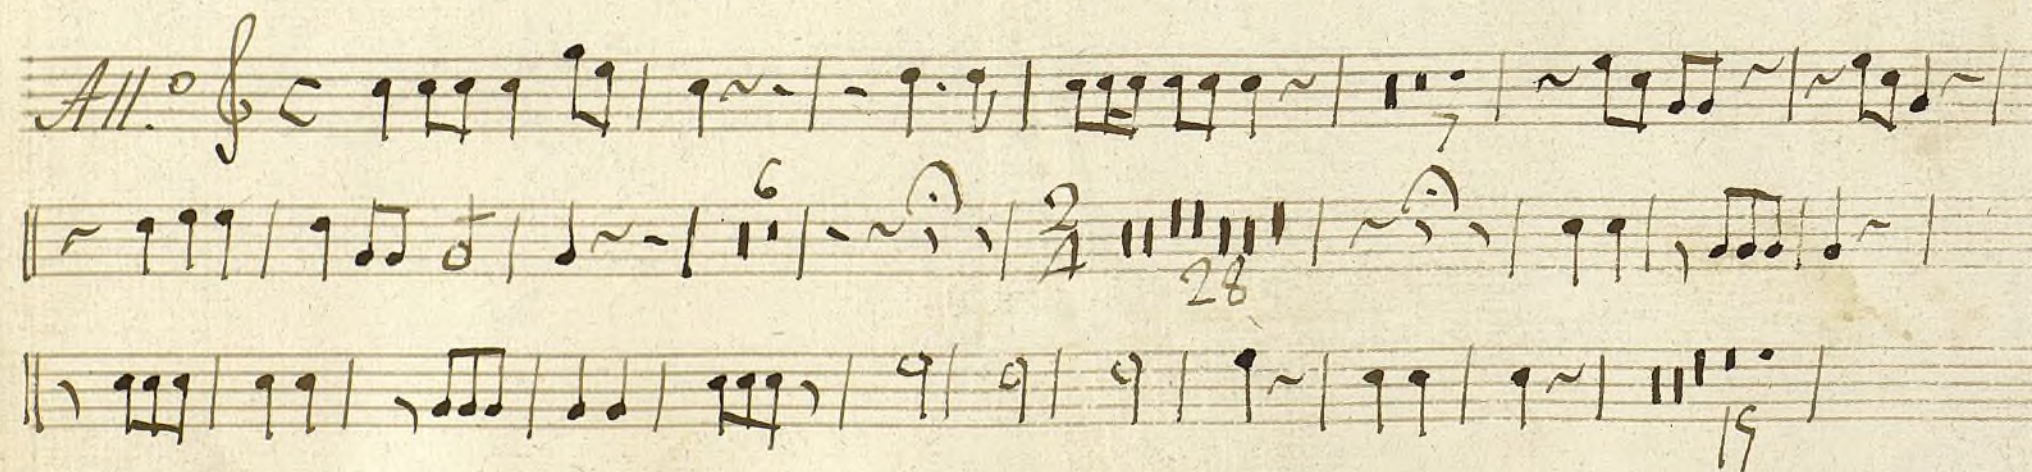 All.o C
7
6
2/4
28
15